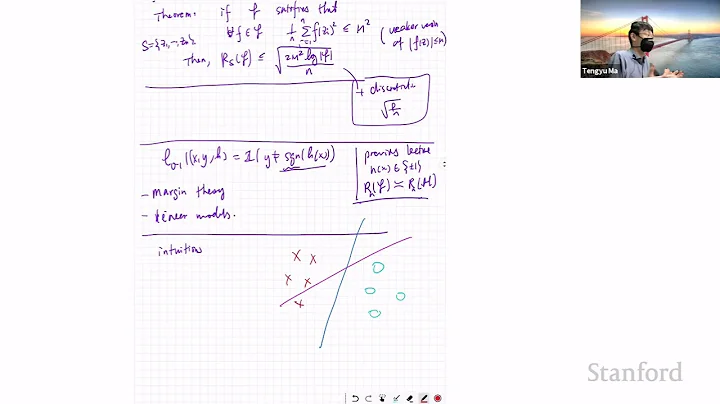 Theorem: if F satisfies that
S={z₁,…,zₙ} ∀f∈F 1/n Σᵢ₌₁ⁿ f(zᵢ)² ≤ M² (weaker version of |f(z)|≤M)
Then, R_S(F) ≤ √(2M² log|F| / n)
+ discretization
√(p/n)
ℓ₀₋₁((x,y),h) = 1(y ≠ sgn(h(x)))
previous lecture
h(x) ∈ {±1}
Rₙ(F) ≍ Rₙ(H)
- Margin theory
- Linear models.
intuition
Tengyu Ma
Stanford